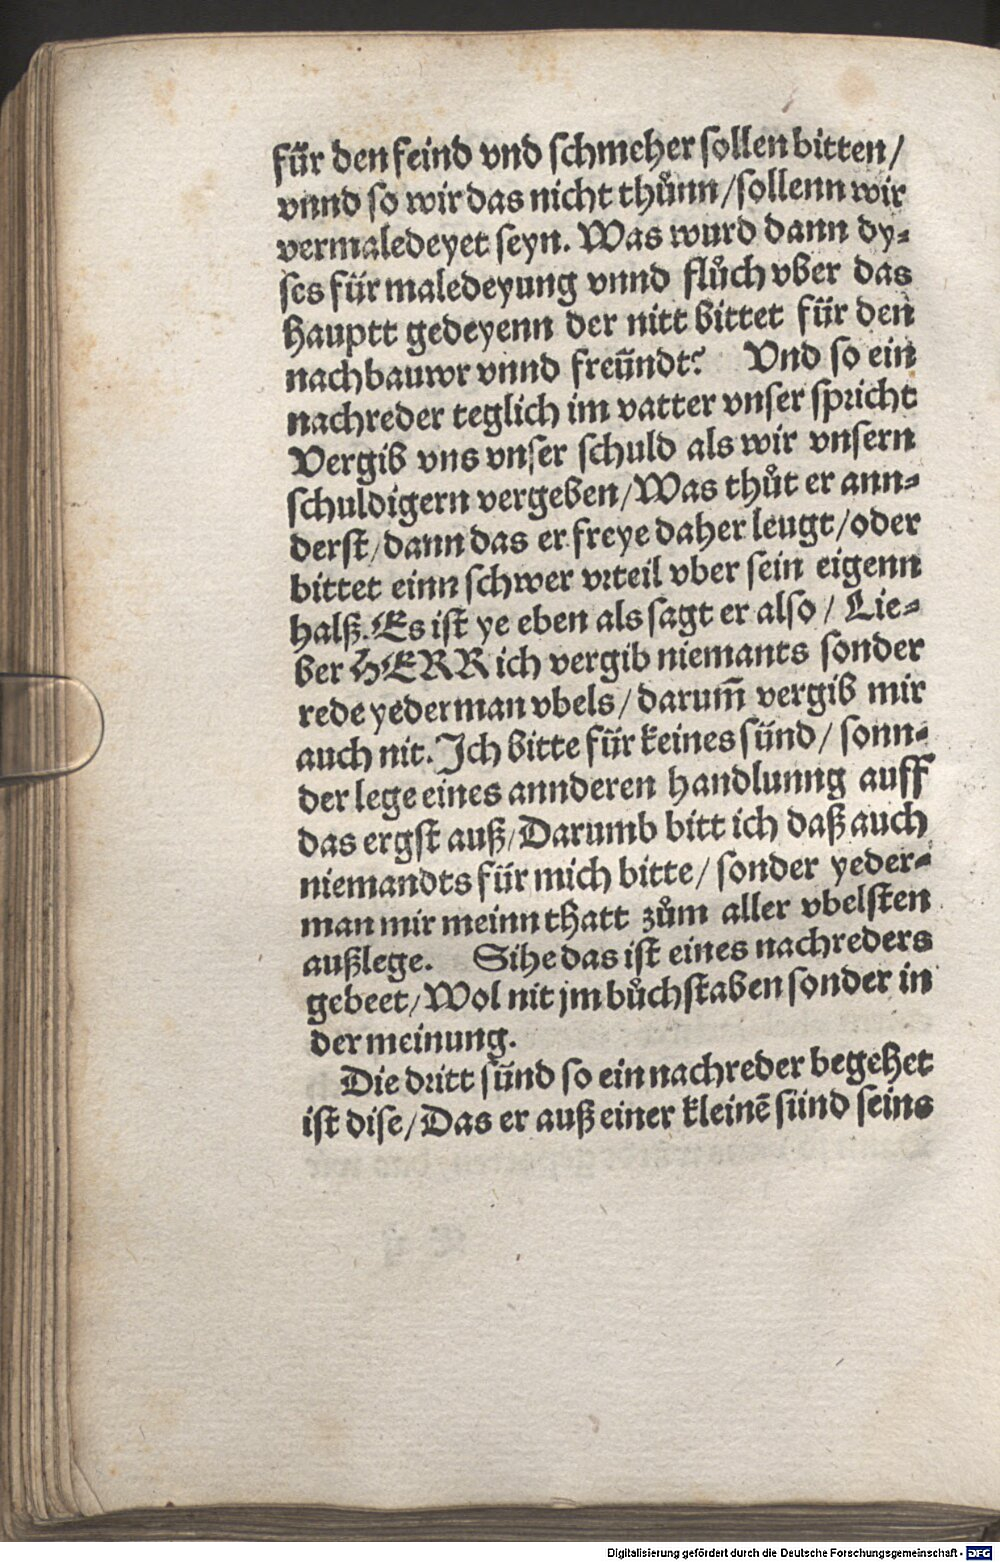 für den feind vnd schmeher sollen bitten /
vnnd so wir das nicht thůnn / sollenn wir
vermaledeyet seyn. Was wurd dann dy⸗
ses für maledeyung vnnd flůch vber das
hauptt gedeyenn der nitt bittet für den
nachbauwr vnnd freündt? Vnd so ein
nachreder teglich im vatter vnser spricht
Vergib vns vnser schuld als wir vnsern
schuldigern vergeben / Was thůt er ann⸗
derst / dann das er freye daher leugt / oder
bittet einn schwer vrteil vber sein eigenn
halß. Es ist ye eben als sagt er also / Lie⸗
ber HERR ich vergib niemants sonder
rede yederman vbels / darum̃ vergib mir
auch nit. Ich bitte für keines sünd / sonn⸗
der lege eines annderen handlunng auff
das ergst auß / Darumb bitt ich daß auch
niemandts für mich bitte / sonder yeder⸗
man mir meinn thatt zům aller vbelsten
außlege. Sihe das ist eines nachreders
gebeet / Wol nit jm bůchstaben sonder in
der meinung.
Die dritt sünd so ein nachreder begehet
ist dise / Das er auß einer kleinẽ sünd seins
Digitalisierung gefördert durch die Deutsche Forschungsgemeinschaft - DFG